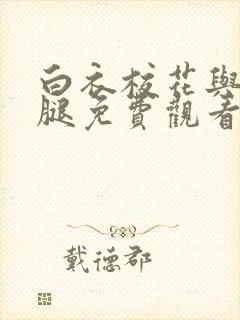 白衣校花與
腿免費觀看
戴德郡